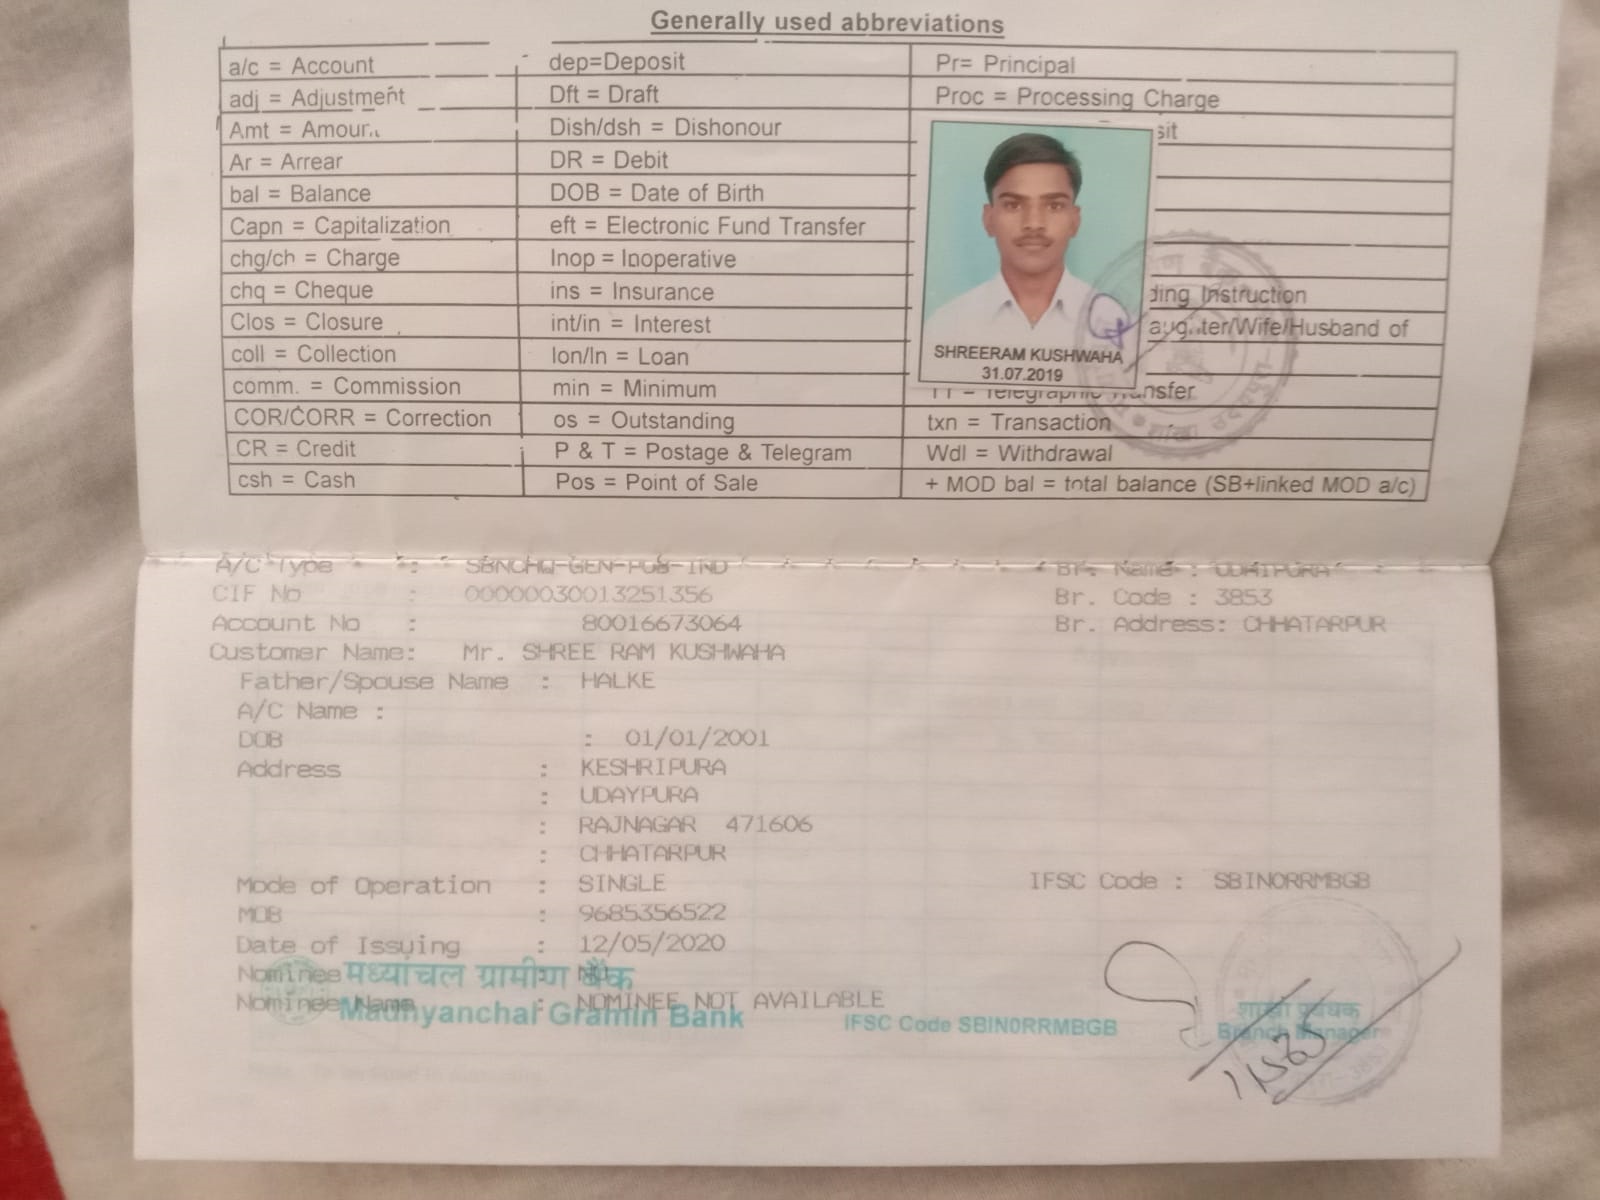 Generally used abbreviations
a/c = Account dep=Deposit Pr= Principal
adj = Adjustment Dft = Draft Proc = Processing Charge
Amt = Dish/dsh = Dishonour
Ar = Arrear DR = Debit
bal = Balance DOB = Date of Birth
Capn = Capitalization eft = Electronic Fund Transfer
chg/ch = Charge Inop = Inoperative
chq = Cheque ins = Insurance Instruction
Clos = Closure int/in = Interest /Wife/Husband of
coll = Collection lon/ln = Loan
comm. = Commission min = Minimum
COR/CORR = Correction os = Outstanding txn = Transaction
CR = Credit P & T = Postage & Telegram Wdl = Withdrawal
csh = Cash Pos = Point of Sale + MOD bal = total balance (SB+linked MOD a/c)
SHREERAM KUSHWAHA
31.07.2019
A/C Type : SBNCHQ-GEN-PUB-IND Br. Name : UDAIPURA
CIF No : 00000030013251356 Br. Code : 3853
Account No : 80016673064 Br. Address: CHHATARPUR
Customer Name: Mr. SHREE RAM KUSHWAHA
Father/Spouse Name : HALKE
A/C Name :
DOB : 01/01/2001
Address : KESHRIPURA
: UDAYPURA
: RAJNAGAR 471606
: CHHATARPUR
Mode of Operation : SINGLE IFSC Code : SBIN0RRMBGB
MOB : 9685356522
Date of Issuing : 12/05/2020
Nominee : NO
मध्यांचल ग्रामीण बैंक
Nominee Name : NOMINEE NOT AVAILABLE
Madhyanchal Gramin Bank IFSC Code SBIN0RRMBGB
शाखा प्रबंधक
Branch Manager